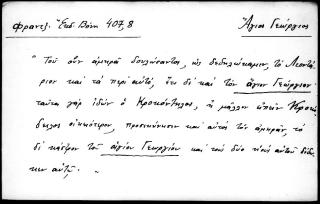 Φραντζ. Ἔκδ. Βόνν. 407,8 Ἅγιος Γεώργιος
" Τοῦ οὖν ἀμηρᾶ δουλώσαντος, ὡς δεδηλώκαμεν, τὸ Λεοντά-
ριον καὶ τὰ περὶ αὐτό, ἔτι δὲ καὶ τὸν ἅγιον Γεώργιον
ταῦτα γὰρ ἰδὼν ὁ Κροκόντηλος, ἢ μᾶλλον εἰπεῖν Κροκό-
δειλος οἰκειότερον, προσεκύνησεν καὶ αὐτὸς τὸν ἀμηρᾶν, τὸ
δὲ κάστρον τοῦ ἁγίου Γεωργίου καὶ τοὺς δύο υἱοὺς αὐτοῦ δέδω-
κεν αὐτῷ. "